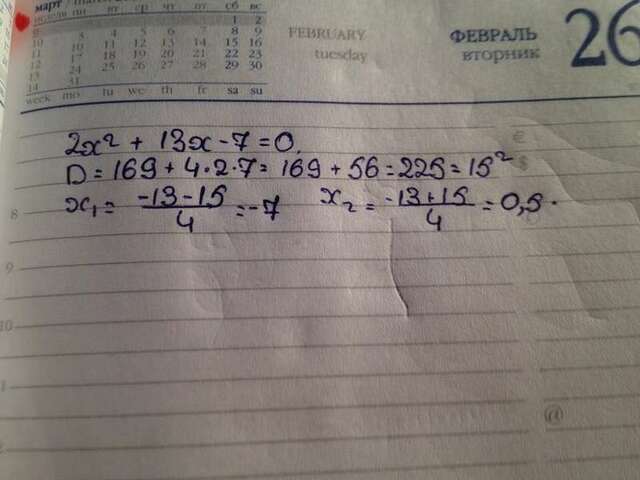 март
недели пн вт ср чт пт сб вс
1 2
9 3 4 5 6 7 8 9
10 10 11 12 13 14 15 16
11 17 18 19 20 21 22 23
12 24 25 26 27 28 29 30
13 31
14
week mo tu we th fr sa su
FEBRUARY
tuesday
ФЕВРАЛЬ
вторник
26
2x² + 13x - 7 = 0.
D = 169 + 4·2·7 = 169 + 56 = 225 = 15²
x₁ = (-13-15)/4 = -7 x₂ = (-13+15)/4 = 0,5.
€
$
8
9
10
@